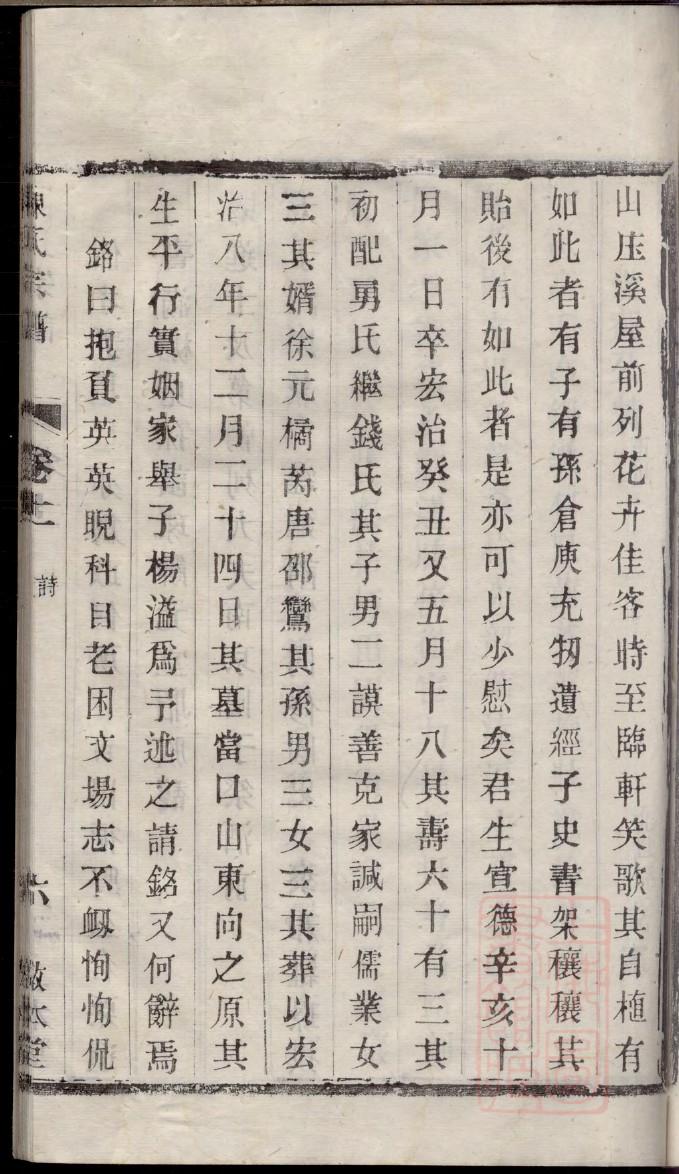 山庄溪屋前列花卉佳客時至臨軒笑歌其自植有
如此者有子有孫倉庾充牣遺經子史書架穰穰其
貽後有如此者是亦可以少慰矣君生宣德辛亥十
月一日卒宏治癸丑又五月十八其壽六十有三其
初配勇氏繼錢氏其子男二謨善克家諴嗣儒業女
三其婿徐元橘芮唐邵鸞其孫男三女三其葬以宏
治八年十二月二十四日其墓當口山東向之原其
生平行實姻家舉子楊溢爲予述之請銘又何辭焉
銘曰抱負英英睨科目老困文場志不衂恂恂侃
陳氏宗譜 卷十一 詩 六 敬本堂